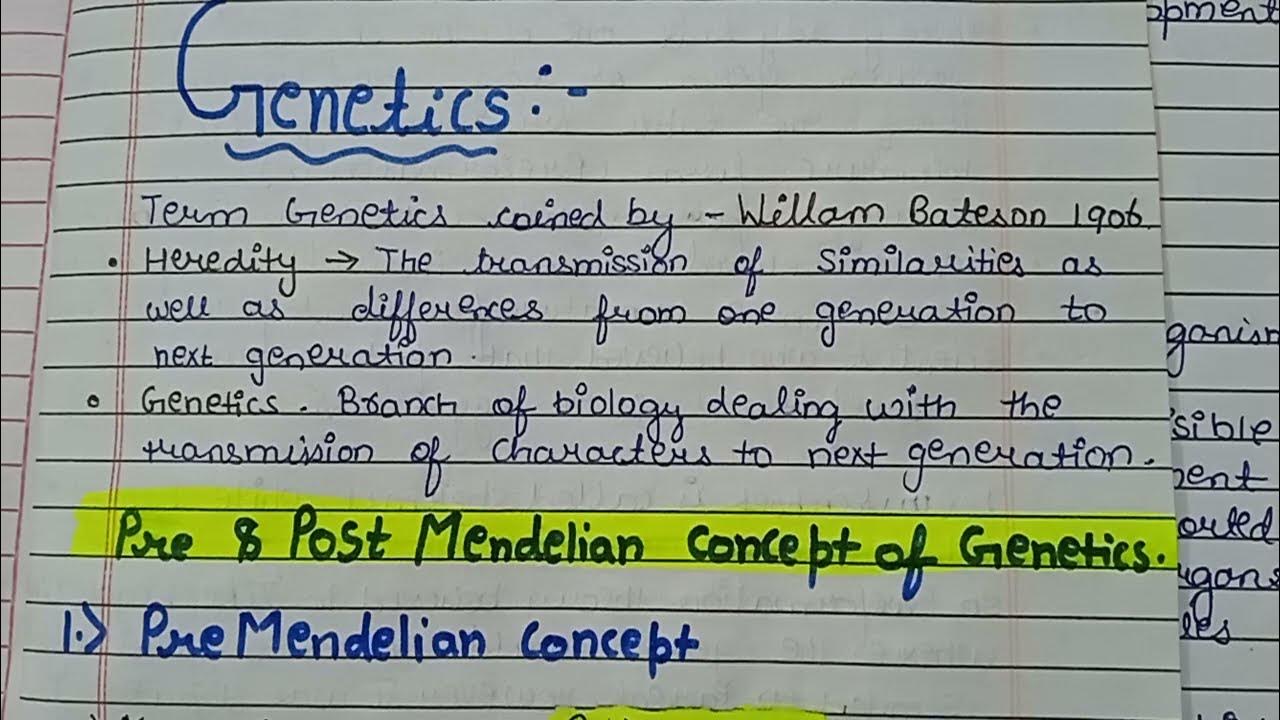 Genetics:-
Term Genetics coined by - Willam Bateson 1906.
• Heredity → The transmission of Similarities as
well as differences from one generation to
next generation.
• Genetics. Branch of biology dealing with the
transmission of characters to next generation.
Pre & Post Mendelian concept of Genetics.
1.) Pre Mendelian concept
opment
ganism
sible
ent
orted
rgans